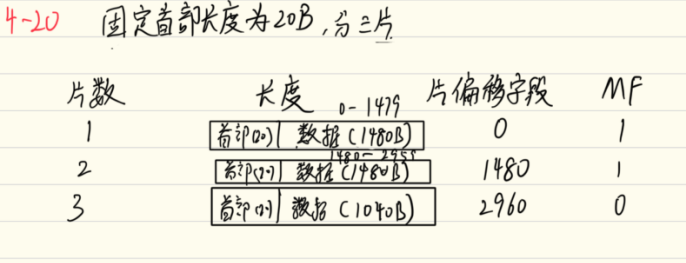 4-20 固定首部长度为20B,分三片
片数 长度 片偏移字段 MF
0-1479
1 首部(20) 数据(1480B) 0 1
1480-2959
2 首部(20) 数据(1480B) 1480 1
3 首部(20) 数据(1040B) 2960 0